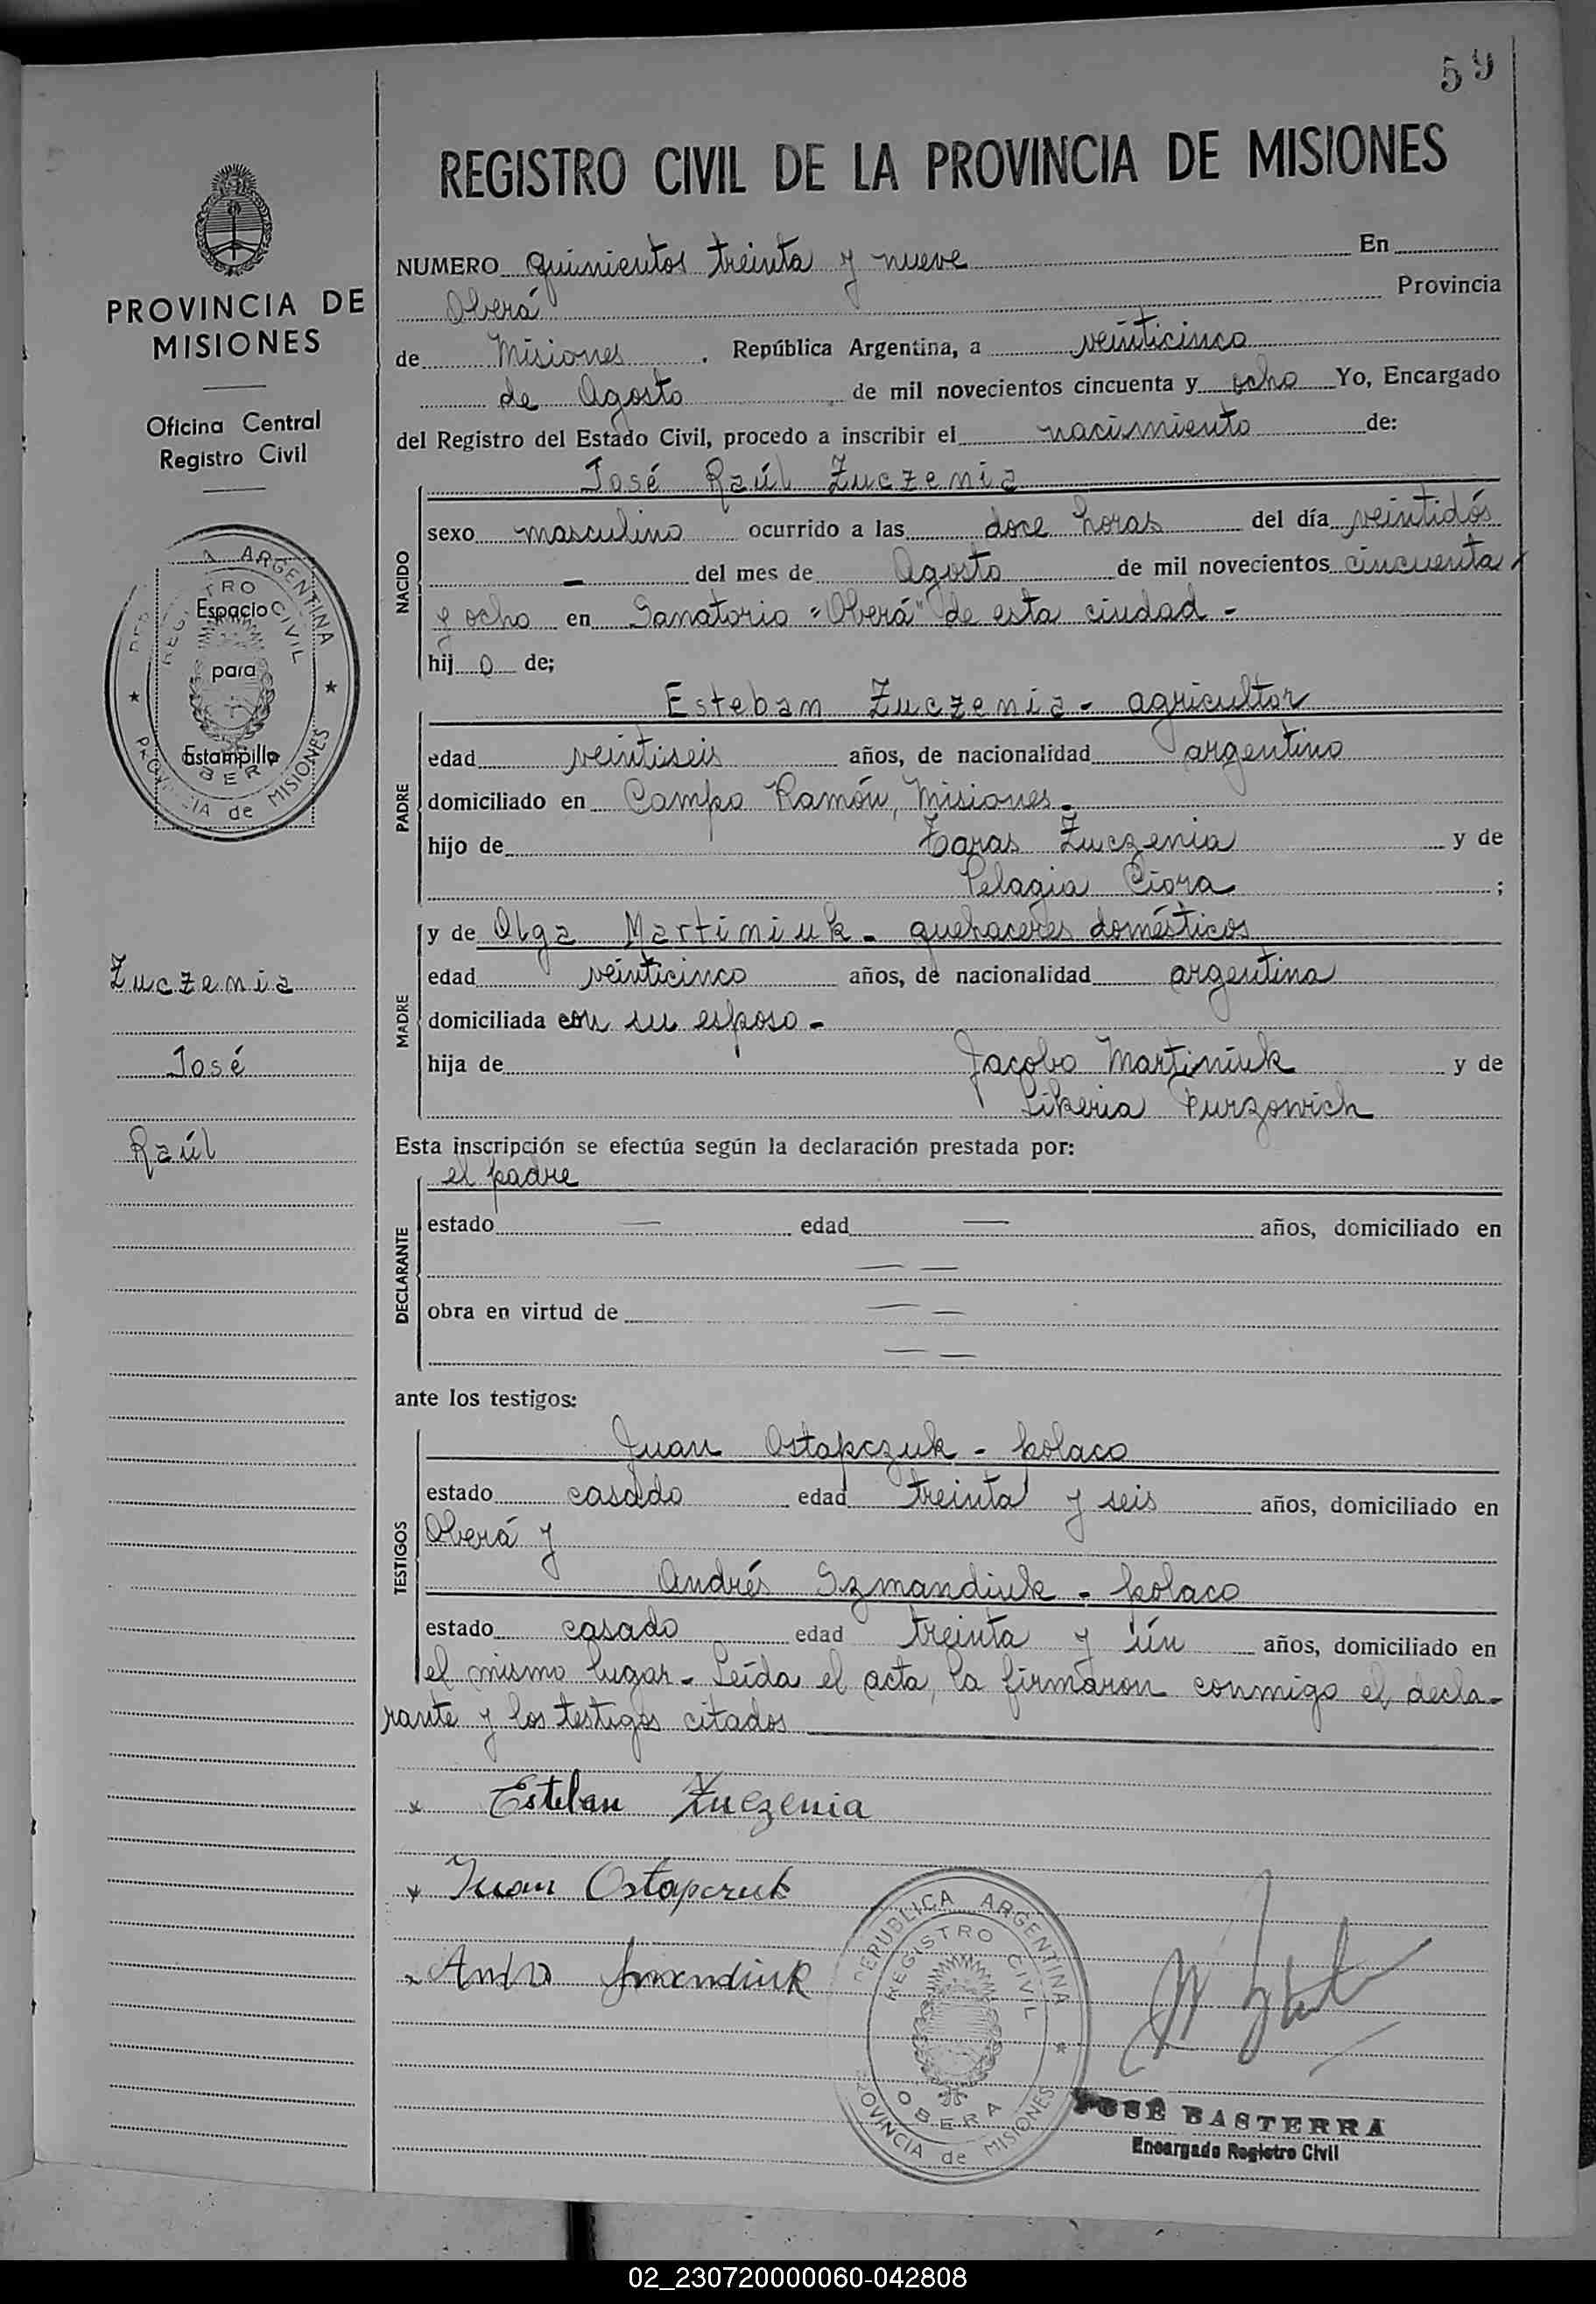 59
REGISTRO CIVIL DE LA PROVINCIA DE MISIONES
PROVINCIA DE
MISIONES
Oficina Central
Registro Civil
Espacio
para
Estampilla
Zuczenia
José
Raúl
NUMERO quinientos treinta y nueve En
Oberá Provincia
de Misiones . República Argentina, a veinticinco
de Agosto de mil novecientos cincuenta y ocho Yo, Encargado
del Registro del Estado Civil, procedo a inscribir el nacimiento de:
José Raúl Zuczenia
NACIDO
sexo masculino ocurrido a las doce horas del día veintidós
— del mes de Agosto de mil novecientos cincuenta
y ocho en Sanatorio "Oberá" de esta ciudad -
hij o de;
PADRE
Esteban Zuczenia - agricultor
edad veintiseis años, de nacionalidad argentino
domiciliado en Campo Ramón, Misiones -
hijo de Taras Zuczenia y de
Pelagia Ciora ;
MADRE
y de Olga Martiniuk - quehaceres domésticos
edad veinticinco años, de nacionalidad argentina
domiciliada con su esposo -
hija de Jacobo Martiniuk y de
Likeria Purzowich
Esta inscripción se efectúa según la declaración prestada por:
DECLARANTE
el padre
estado — edad — años, domiciliado en
— —
obra en virtud de — —
— —
ante los testigos:
TESTIGOS
Juan Ostapczuk - polaco
estado casado edad treinta y seis años, domiciliado en
Oberá y
Andrés Szmandiuk - polaco
estado casado edad treinta y ún años, domiciliado en
el mismo lugar - Leída el acta, la firmaron conmigo el decla-
rante y los testigos citados
Esteban Zuczenia
Juan Ostapczuk
REPUBLICA ARGENTINA
REGISTRO CIVIL
OBERA
PROVINCIA de MISIONES
JOSÉ BASTERRA
Encargado Registro Civil
02_230720000060-042808